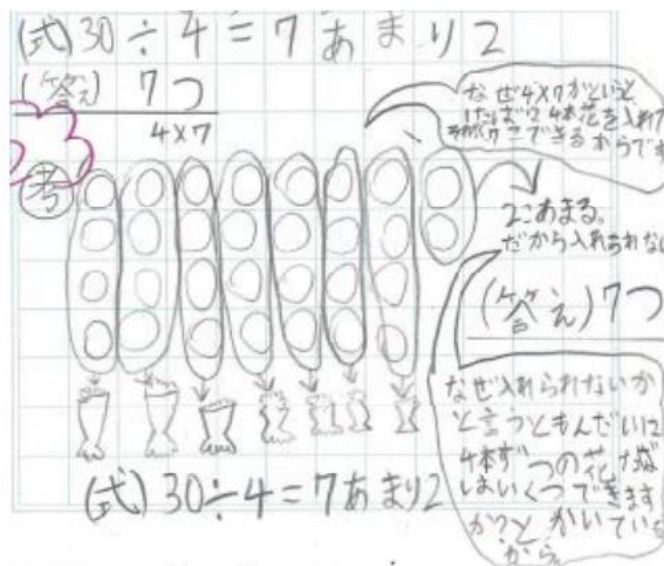 (式)30÷4=7あまり2
(答え) 7つ
4×7
なぜ4×7かというと
4本花を入れ
できるからです
考
2こあまる。
だから入れられない
(答え)7つ
なぜ入れられないか
と言うともんだいに
4本ずつの花たば
はいくつできます
か?とかいている
から。
(式)30÷4=7あまり2